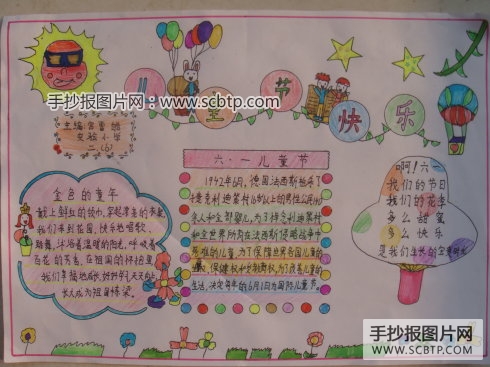 手抄报图片网：www.scbtp.com
儿童节快乐
主编:
实验小学
二.(5)
金色的童年
献上鲜红的领巾,穿起漂亮的衣裳
我们来到花园,快乐地唱歌、
跳舞,沐浴着温暖的阳光,呼吸着
百花的芳香,在祖国的怀抱里
我们幸福地成长,好好学习,天天向上
长大成为祖国栋梁。
六·一儿童节
1942年6月,德国法西斯枪杀了
捷克利迪策村16岁以上的男性公民140
余人和全部婴儿,为了悼念利迪策村
和全世界所有在法西斯侵略战争中
死难的儿童,为了保障世界各国儿童的
保健权和受教育权,为了改善儿童的
生活,决定每年的6月1日为国际儿童节。
啊!六一
我们的节日
我们的花季
多么甜蜜
多么快乐
是我们生长的
手抄报图片网
WWW.SCBTP.COM